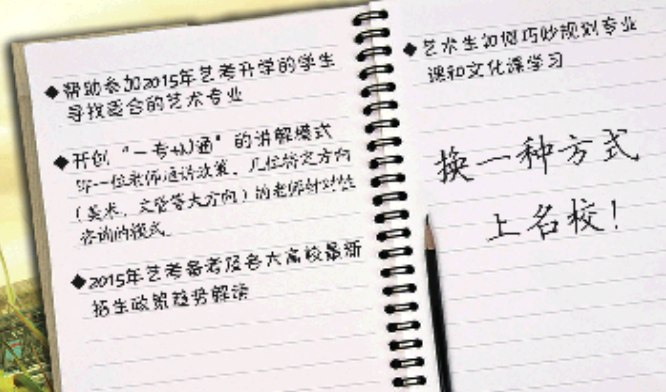 ◆帮助参加2015年艺考升学的学生
寻找适合的艺术专业
◆开创“一专N通”的讲解模式
即一位老师通讲政策，几位特定方向
（美术、文管等大方向）的老师针对性
咨询的模式。
◆2015年艺考备考及各大高校最新
招生政策趋势解读
◆艺术生如何巧妙规划专业
课和文化课学习
换一种方式
上名校！